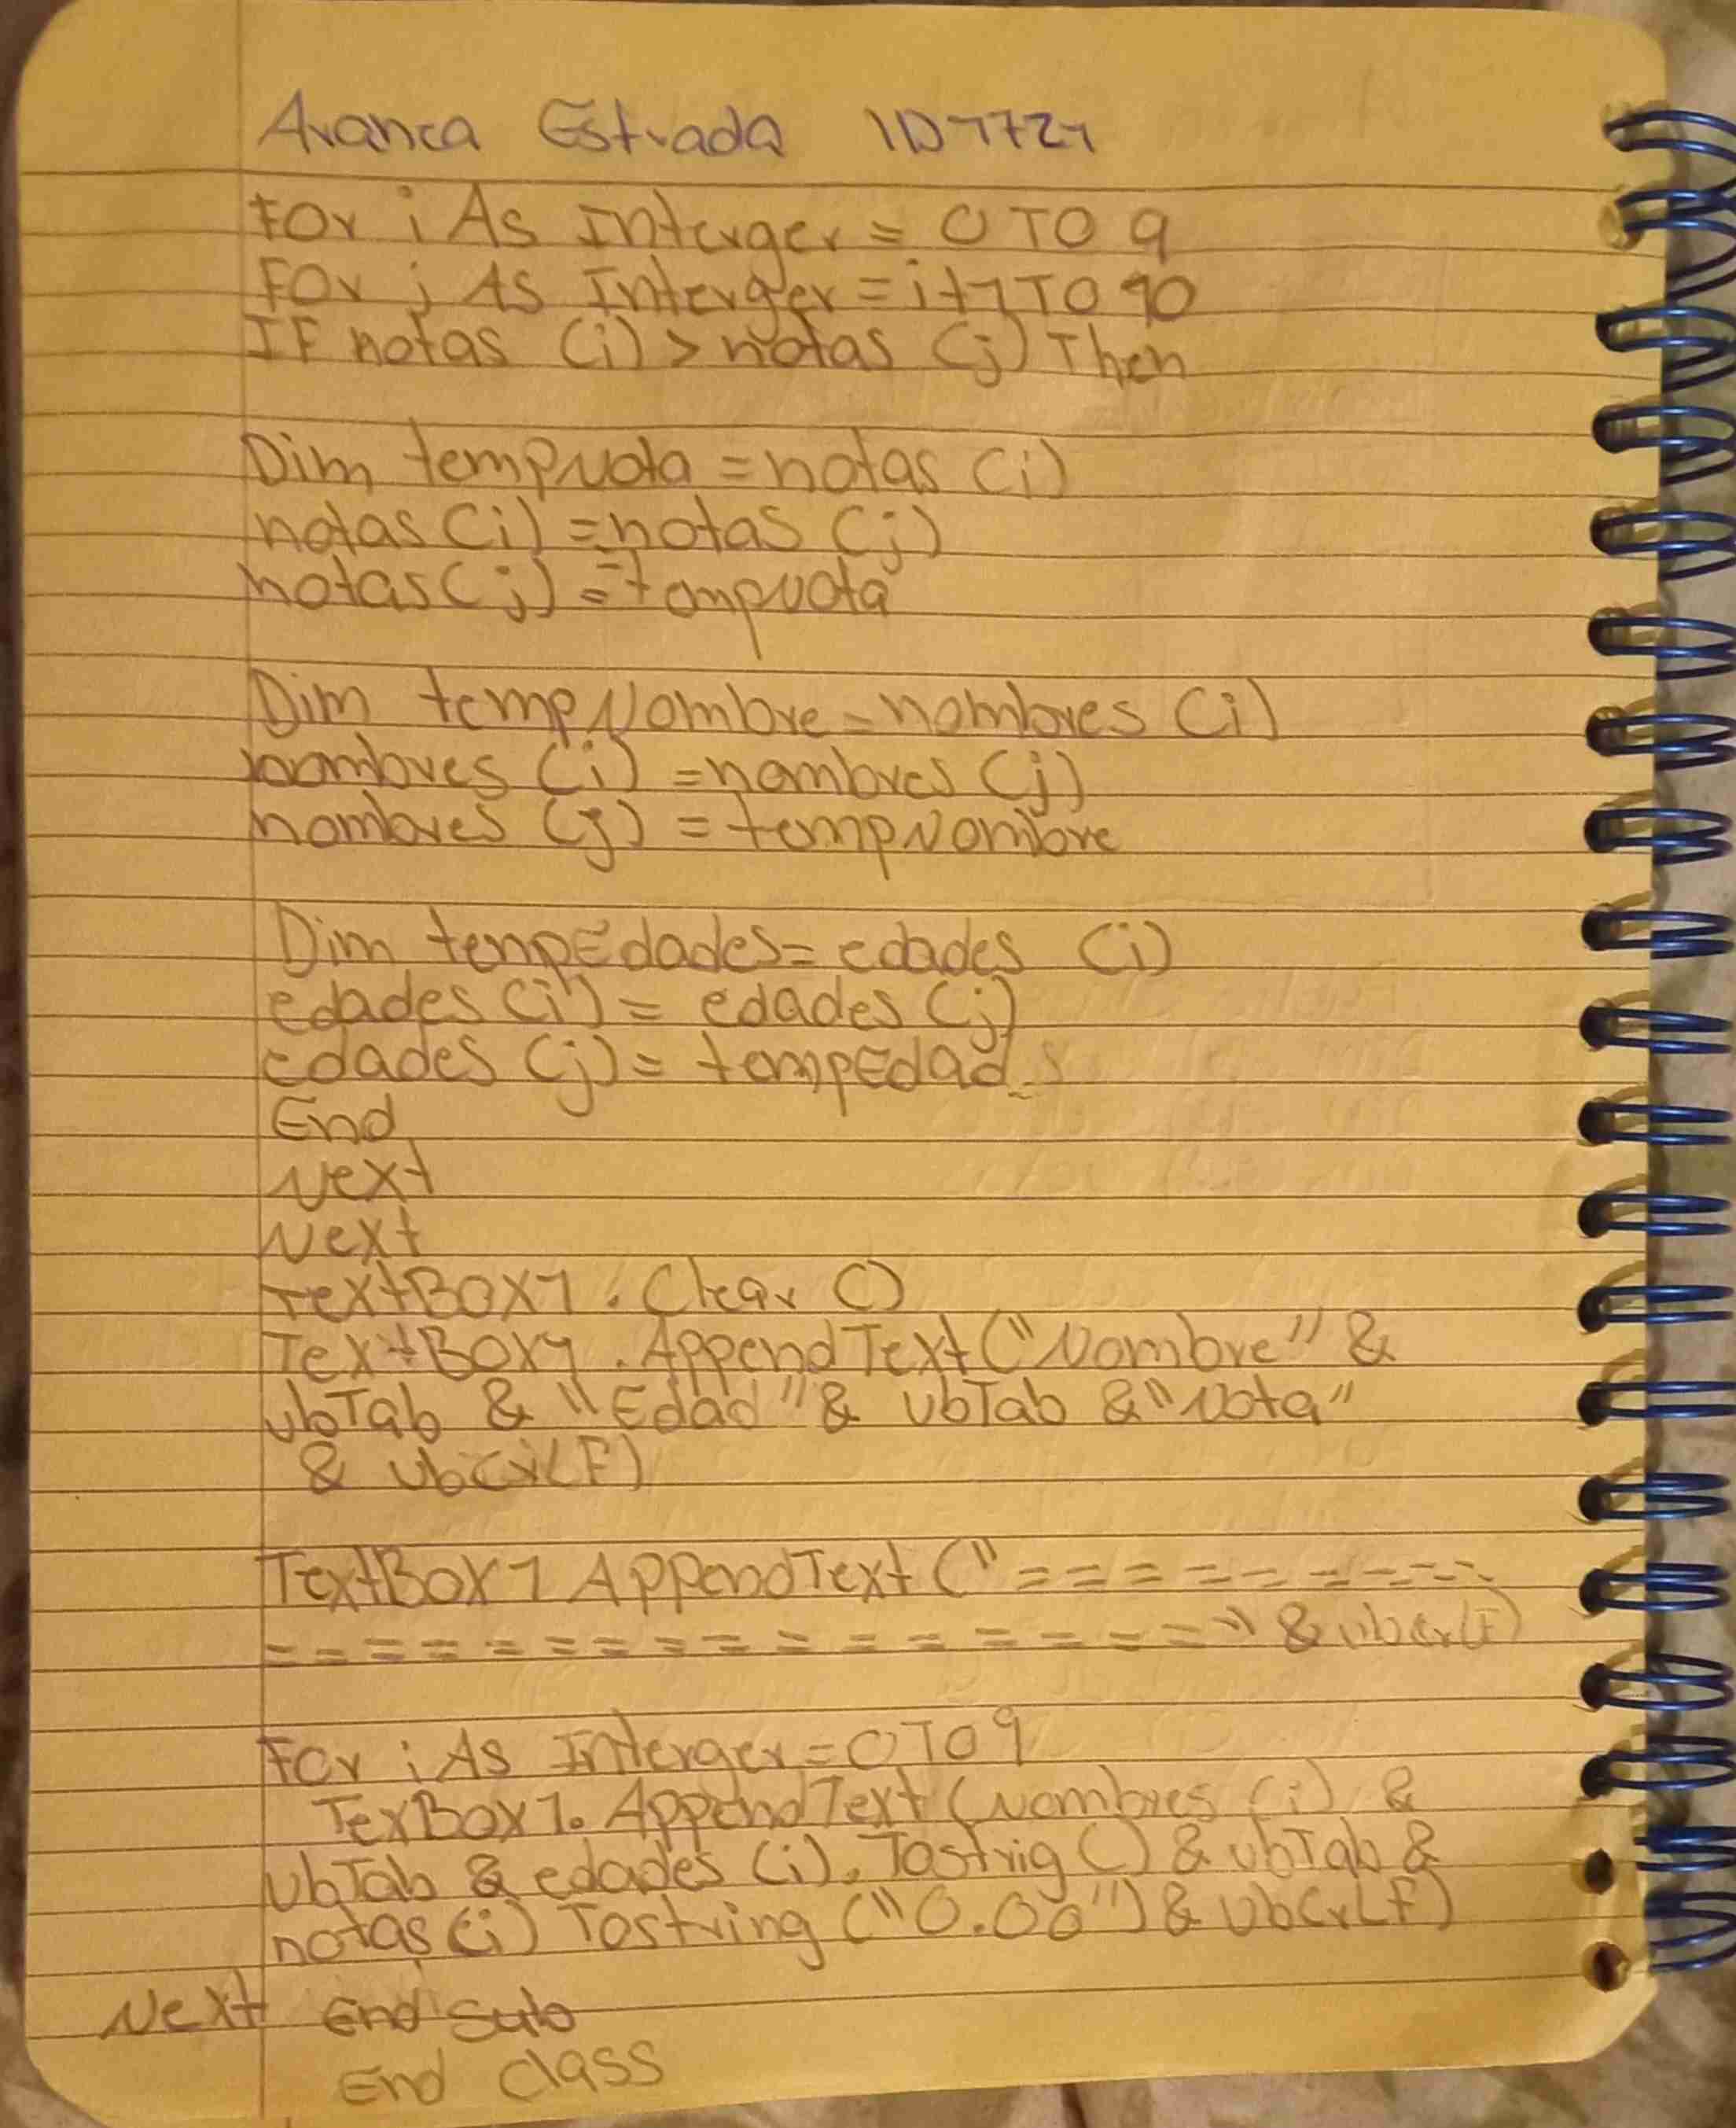 Aranca Estrada 1D1721
For i As Interger = 0 TO 9
For j As Interger = i+1 TO 10
IF notas (i) > notas (j) Then
Dim tempNota = notas (i)
notas (i) = notas (j)
notas (j) = tempNota
Dim tempNombre = nombres (i)
nombres (i) = nombres (j)
nombres (j) = tempNombre
Dim tempEdades = edades (i)
edades (i) = edades (j)
edades (j) = tempEdad
End
Next
Next
TextBox1 . Clear ()
TextBox1 . AppendText ("Nombre" &
vbTab & "Edad" & vbTab & "Nota"
& vbCrLF)
TextBox1 AppendText (" = = = = = = = = =
= = = = = = = = = = = = = = = = = = =" & vbCrLF)
For i As Interger = 0 TO 9
TexBox1. AppendText (Nombres (i) &
vbTab & edades (i). Tostrig () & vbTab &
notas (i) Tostring ("0.00") & vbCrLF)
Next End Sub
End Class